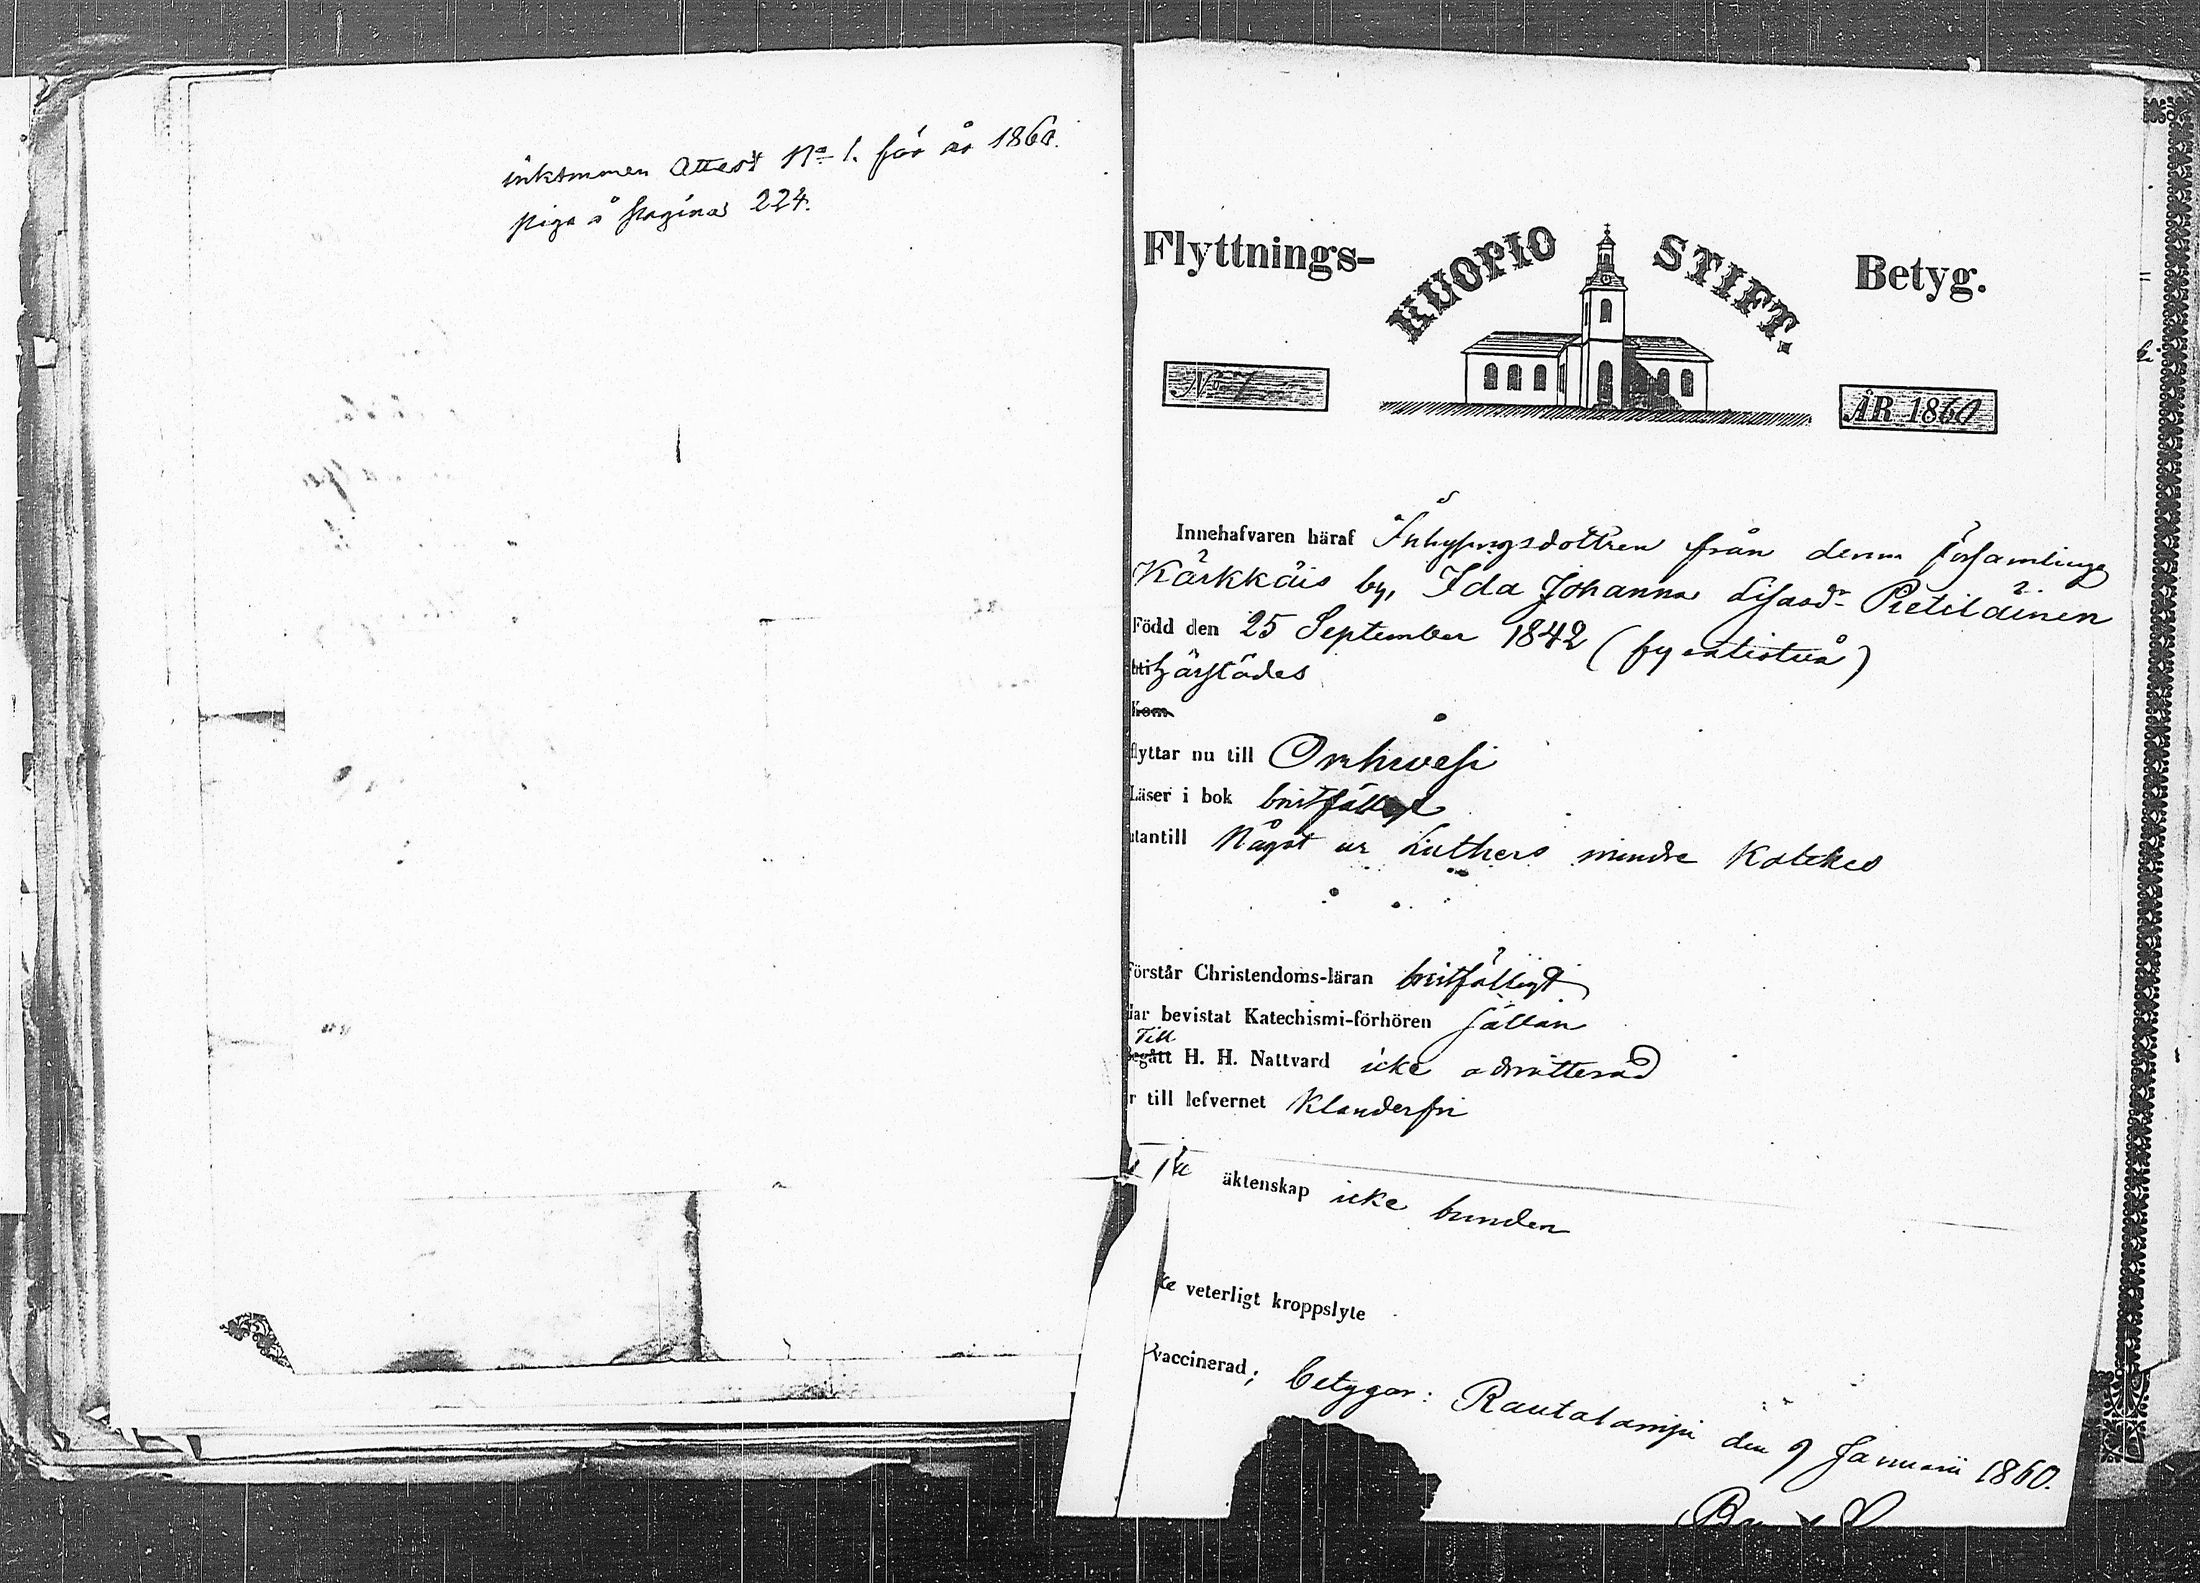 inkommen Attest No 1. för år 1860.
piga å pagina 224.
Flyttnings-
KUOPIO STIFT.
Betyg.
No 7
ÅR 1860
Innehafvaren häraf Inhysingsdottren från denna församlings
Kärkkäis by, Ida Johanna Lisasdr Pietiläinen
Född den 25 September 1842 (fyratiotvå)
härstädes
Kom
flyttar nu till Orihvesi
Läser i bok bristfälligt
utantill Något ur Luthers mindre Katekes
Förstår Christendoms-läran bristfälligt
Har bevistat Katechismi-förhören sällan
Till
Begått H. H. Nattvard icke admitterad
r till lefvernet Klanderfri
Till äktenskap icke bunden
ke veterligt kroppslyte
vaccinerad; betygar: Rautalampi den 9 Januarii 1860.